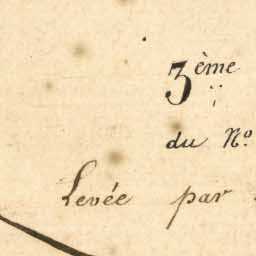 3ème
du No.
Levée par